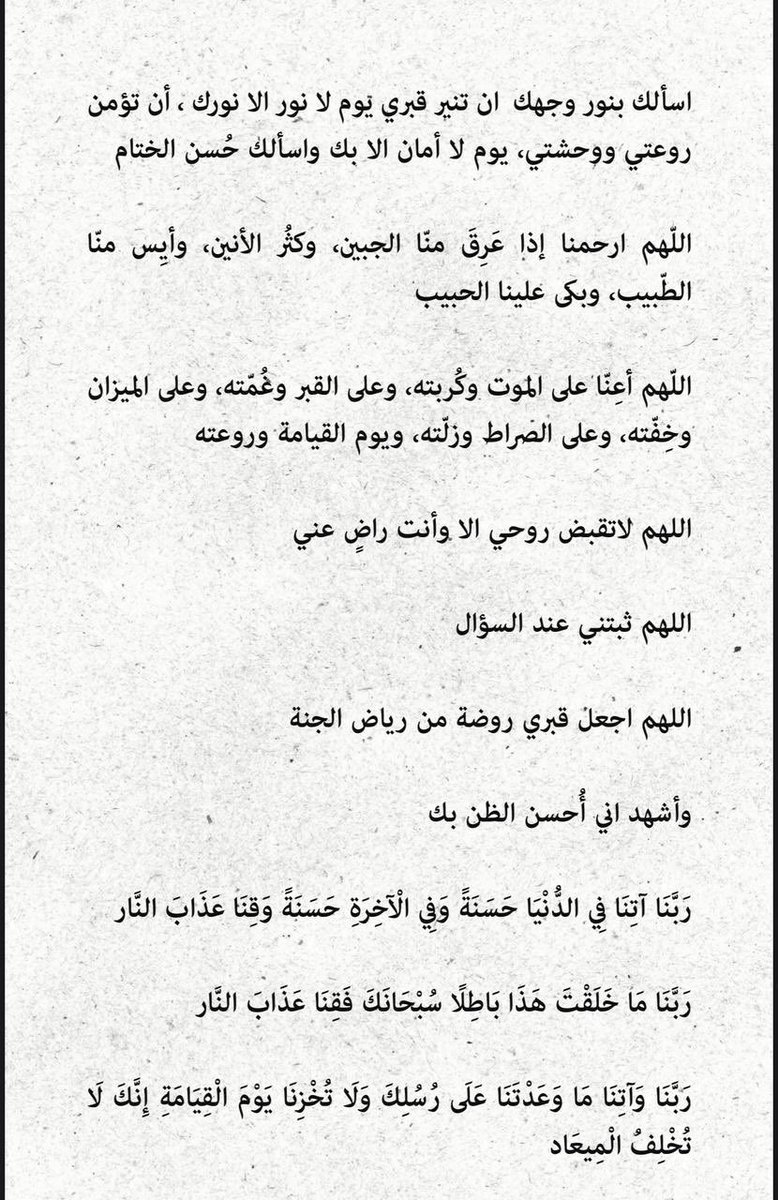 اسألك بنور وجهك ان تنير قبري يوم لا نور الا نورك ، أن تؤمن
روعتي ووحشتي، يوم لا أمان الا بك واسألك حُسن الختام
اللّهم ارحمنا إذا عَرِقَ منّا الجبين، وكثُر الأنين، وأيِس منّا
الطّبيب، وبكى علينا الحبيب
اللّهم أعِنّا على الموت وكُربته، وعلى القبر وغُمّته، وعلى الميزان
وخِفّته، وعلى الصراط وزلّته، ويوم القيامة وروعته
اللهم لاتقبض روحي الا وأنت راضٍ عني
اللهم ثبتني عند السؤال
اللهم اجعل قبري روضة من رياض الجنة
وأشهد اني أُحسن الظن بك
رَبَّنَا آتِنَا فِي الدُّنْيَا حَسَنَةً وَفِي الْآخِرَةِ حَسَنَةً وَقِنَا عَذَابَ النَّار
رَبَّنَا مَا خَلَقْتَ هَذَا بَاطِلًا سُبْحَانَكَ فَقِنَا عَذَابَ النَّار
رَبَّنَا وَآتِنَا مَا وَعَدْتَنَا عَلَى رُسُلِكَ وَلَا تُخْزِنَا يَوْمَ الْقِيَامَةِ إِنَّكَ لَا
تُخْلِفُ الْمِيعَاد